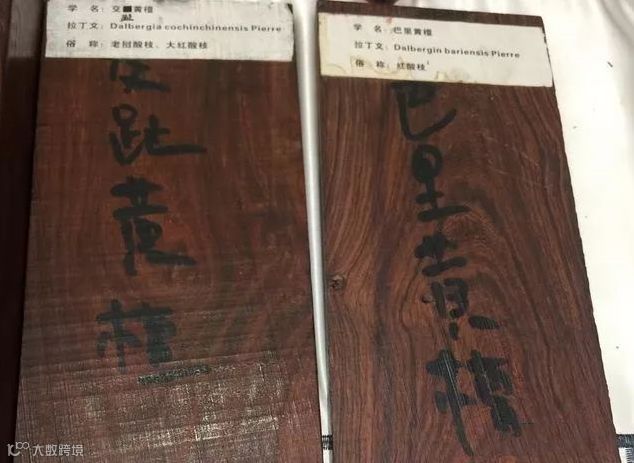 学 名：交趾黄檀
拉丁文：Dalbergia cochinchinensis Pierre
俗 称：老挝酸枝、大红酸枝
交趾黄檀
学 名：巴里黄檀
拉丁文：Dalbergin bariensis Pierre
俗 称：红酸枝
巴里黄檀
大数跨境